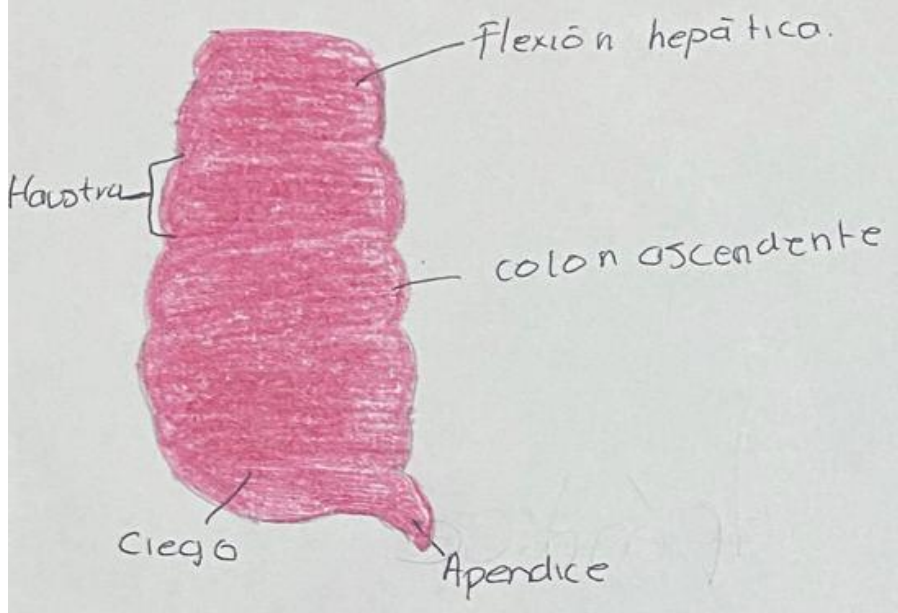 Flexión hepática.
Haustra
colon ascendente
Ciego
Apendice